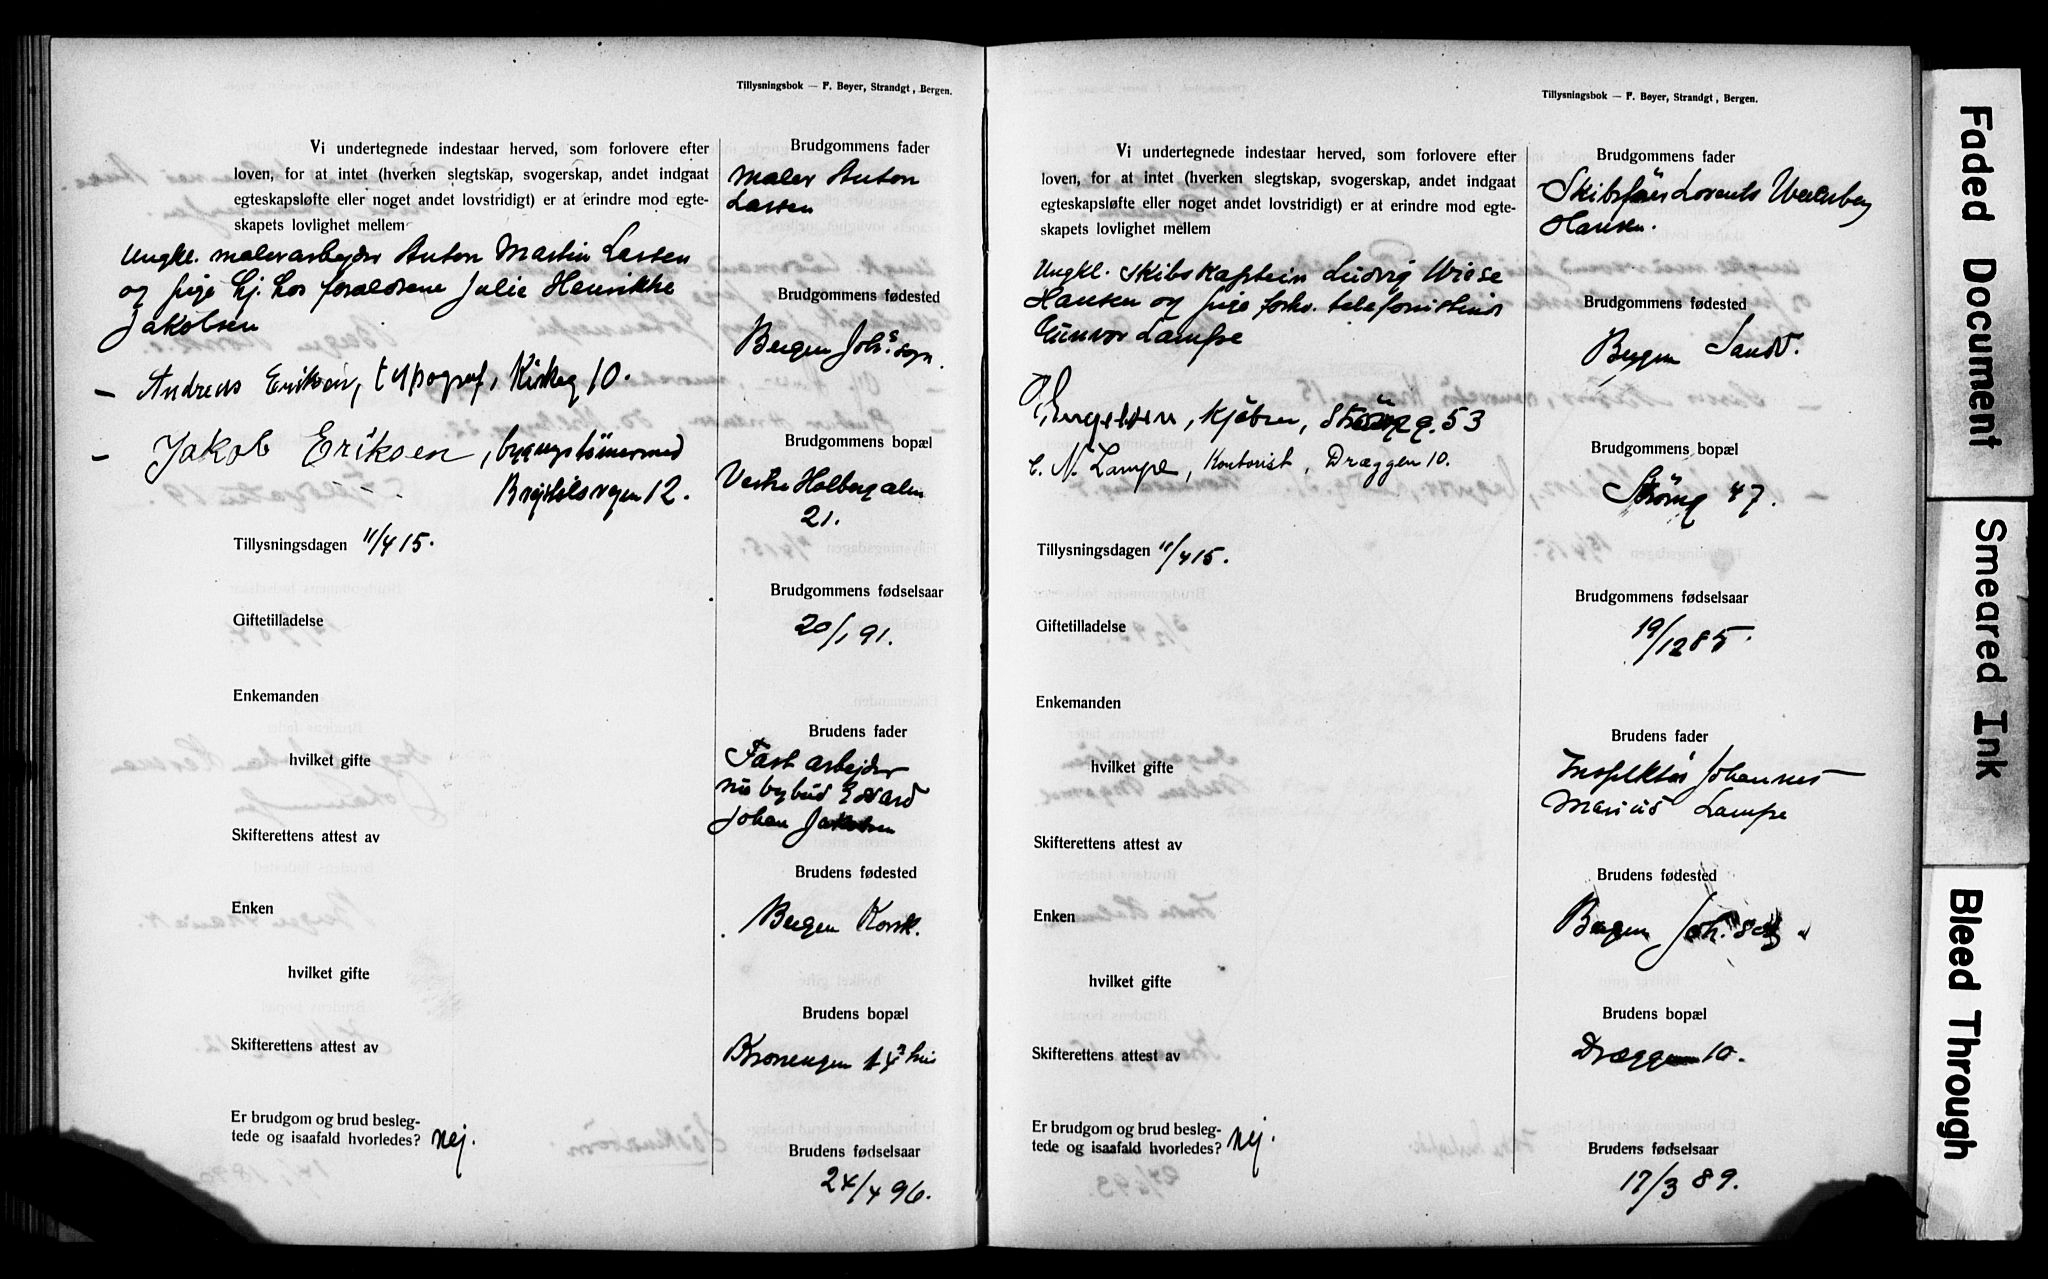 Tillysningsbok — F. Beyer, Strandgt, Bergen.
Vi undertegnede indestaar herved, som forlovere efter
loven, for at intet (hverken slegtskap, svogerskap, andet indgaat
egteskapsløfte eller noget andet lovstridigt) er at erindre mod egte-
skapets lovlighet mellem
Ungkl. malerarbejder Anton Martin Larsen
og pige hj. hos forældrene Julie Henrikke
Jakobsen
— Andreas Eriksen, typograf, Kirkeg 10.
— Jakob Eriksen, bygningstømmermd
12.
Tillysningsdagen 11/4 15.
Giftetilladelse
Enkemanden
hvilket gifte
Skifterettens attest av
Enken
hvilket gifte
Skifterettens attest av
Er brudgom og brud besleg-
tede og isaafald hvorledes? nej.
Brudgommens fader
Maler Anton
Larsen
Brudgommens fødested
Bergen Johs sogn.
Brudgommens bopæl
Vestre Holbergalm
21.
Brudgommens fødselsaar
20/1 91.
Brudens fader
Fast arbejder
nu bybud Edvard
Johan Jakobsen
Brudens fødested
Bergen Korsk.
Brudens bopæl
Kronengen
Brudens fødselsaar
24/4 96.
Tillysningsbok — F. Beyer, Strandgt, Bergen.
Vi undertegnede indestaar herved, som forlovere efter
loven, for at intet (hverken slegtskap, svogerskap, andet indgaat
egteskapsløfte eller noget andet lovstridigt) er at erindre mod egte-
skapets lovlighet mellem
Ungkl. Skibskaptein Ludvig Wiese
Hansen og pige forhv. telefonistinde
Gunvor Lampe
Engelsen, kjøbm, 53
C. N. Lampe, Kontorist, Dræggen 10.
Tillysningsdagen 11/4 15.
Giftetilladelse
Enkemanden
hvilket gifte
Skifterettens attest av
Enken
hvilket gifte
Skifterettens attest av
Er brudgom og brud besleg-
tede og isaafald hvorledes? nej.
Brudgommens fader
Skibsfører Lorents
Hansen.
Brudgommens fødested
Bergen Sandv.
Brudgommens bopæl
Strømg 47.
Brudgommens fødselsaar
19/12 85.
Brudens fader
Inspektør Johannes
Marius Lampe
Brudens fødested
Bergen Joh. sog
Brudens bopæl
Dræggen 10.
Brudens fødselsaar
17/3 89.
Faded Document
Smeared Ink
Bleed Through